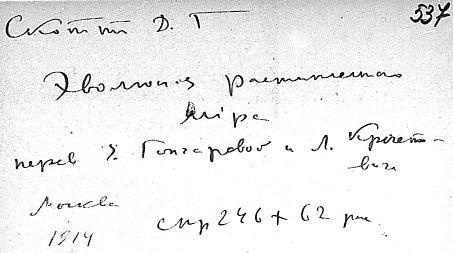 Скоттъ Д. Г 537
Эволюция растительного
мiра
перев Э. Гончаровой и Л. Кречето-
вич
Москва
1914 стр 246 + 62 рис